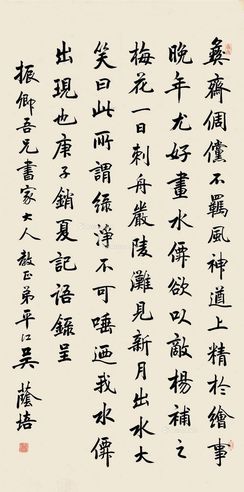 彝齋倜儻不羈風神道上精於繪事
晚年尤好畫水僊欲以敵楊補之
梅花一日刺舟嚴陵灘見新月出水大
笑曰此所謂綠淨不可唾迺我水僊
出現也庚子銷夏記語錄呈
振卿吾兄書家大人教正弟平江吳蔭培